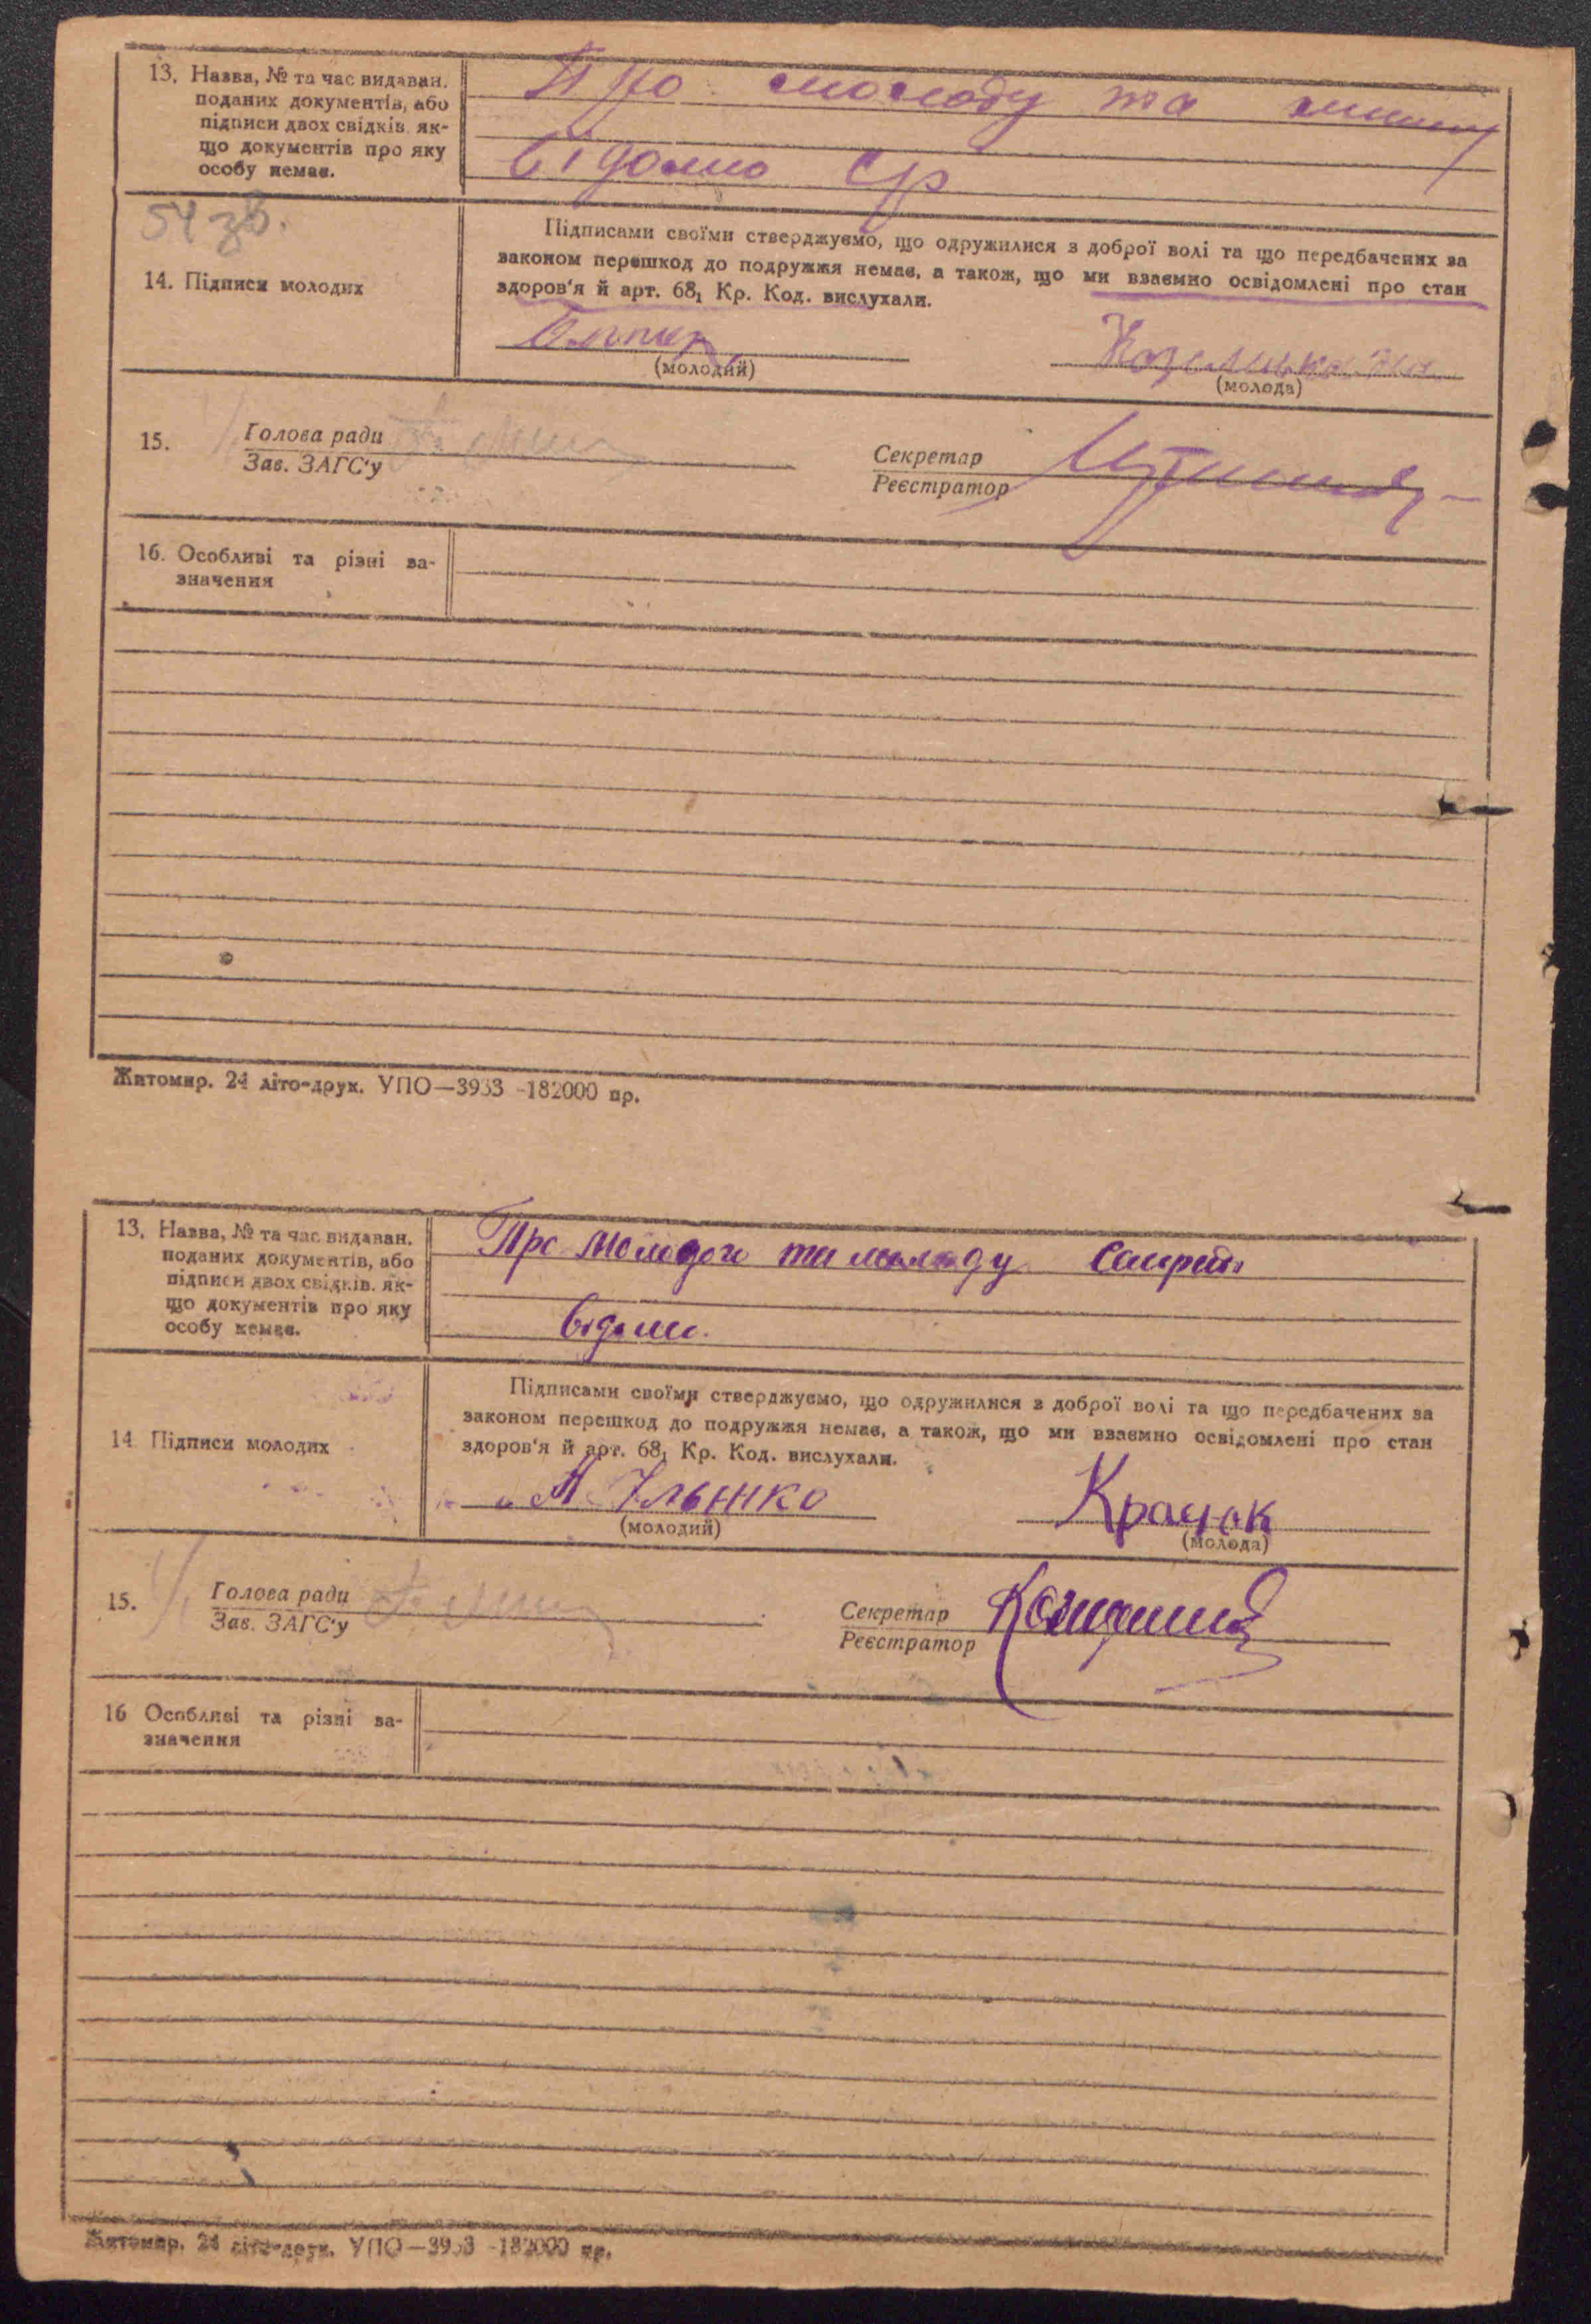 13. Назва, № та час видаван.
поданих документів, або
підписи двох свідків, як-
що документів про яку
особу немає.
Про молоду та
відомо ср
54 зв.
14. Підписи молодих
Підписами своїми стверджуємо, що одружилися з доброї волі та що передбачених за
законом перешкод до подружжя немає, а також, що ми взаємно освідомлені про стан
здоров'я й арт. 68₁ Кр. Код. вислухали.
(молодий)
(молода)
15.
Голова ради
Зав. ЗАГС'у
Секретар
Реєстратор
16. Особливі та різні за-
значення
Житомир. 24 літо-друк. УПО—3933 -182000 пр.
13. Назва, № та час видаван.
поданих документів, або
підписи двох свідків, як-
що документів про яку
особу немає.
Про молодого та молоду
відомо.
14. Підписи молодих
Підписами своїми стверджуємо, що одружилися з доброї волі та що передбачених за
законом перешкод до подружжя немає, а також, що ми взаємно освідомлені про стан
здоров'я й арт. 68₁ Кр. Код. вислухали.
А. Ільєнко
Крачок
(молодий)
(молода)
15.
Голова ради
Зав. ЗАГС'у
Секретар
Реєстратор
16 Особливі та різні за-
значення
Житомир. 24 літо-друк. УПО—3933 -182000 пр.